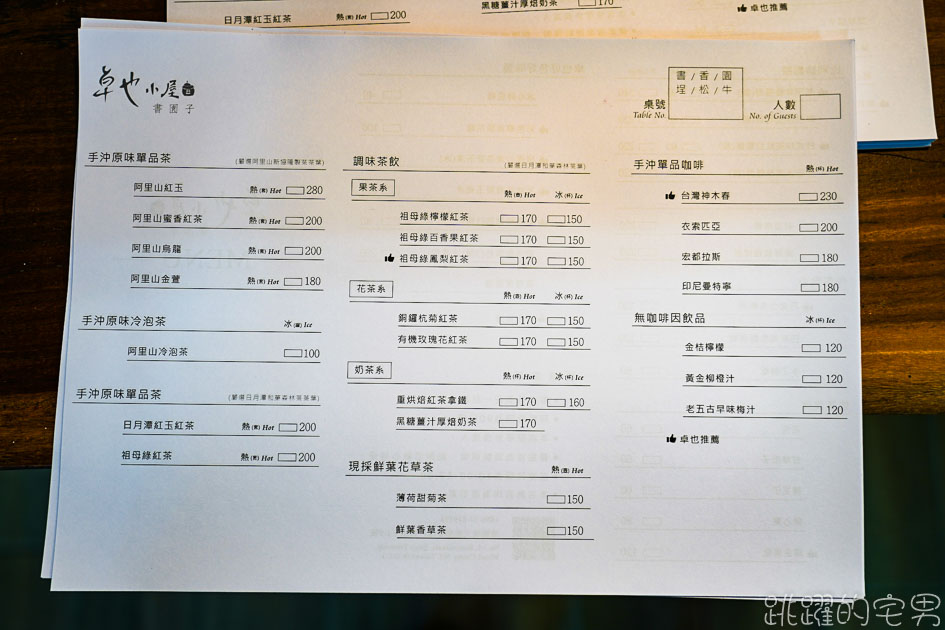 日月潭紅玉紅茶 熱(壺) Hot 200
黑糖薑汁厚焙奶茶 170
卓也推薦
卓也小屋
書圓子
書/香/園
埕/松/牛
桌號 Table No.
人數 No. of Guests
手沖原味單品茶
阿里山紅玉 熱(壺) Hot 280
阿里山蜜香紅茶 熱(壺) Hot 200
阿里山烏龍 熱(壺) Hot 200
阿里山金萱 熱(壺) Hot 180
手沖原味冷泡茶 冰 Ice
阿里山冷泡茶 100
手沖原味單品茶 (嚴選日月潭和菓森林茶葉)
日月潭紅玉紅茶 熱(壺) Hot 200
祖母綠紅茶 熱(壺) Hot 200
調味茶飲 (嚴選日月潭和菓森林茶葉)
果茶系 熱(壺) Hot 冰(杯) Ice
祖母綠檸檬紅茶 170 150
祖母綠百香果紅茶 170 150
祖母綠鳳梨紅茶 170 150
花茶系 熱(壺) Hot 冰(杯) Ice
銅鑼杭菊紅茶 170 150
有機玫瑰花紅茶 170 150
奶茶系 熱(杯) Hot 冰(杯) Ice
重烘焙紅茶拿鐵 170 160
黑糖薑汁厚焙奶茶 170
現採鮮葉花草茶 熱(壺) Hot
薄荷甜菊茶 150
鮮葉香草茶 150
手沖單品咖啡 熱(杯) Hot
台灣神木春 230
衣索匹亞 200
宏都拉斯 180
印尼曼特寧 180
無咖啡因飲品 冰(杯) Ice
金桔檸檬 120
黃金柳橙汁 120
老五古早味梅汁 120
卓也推薦
跳躍的宅男